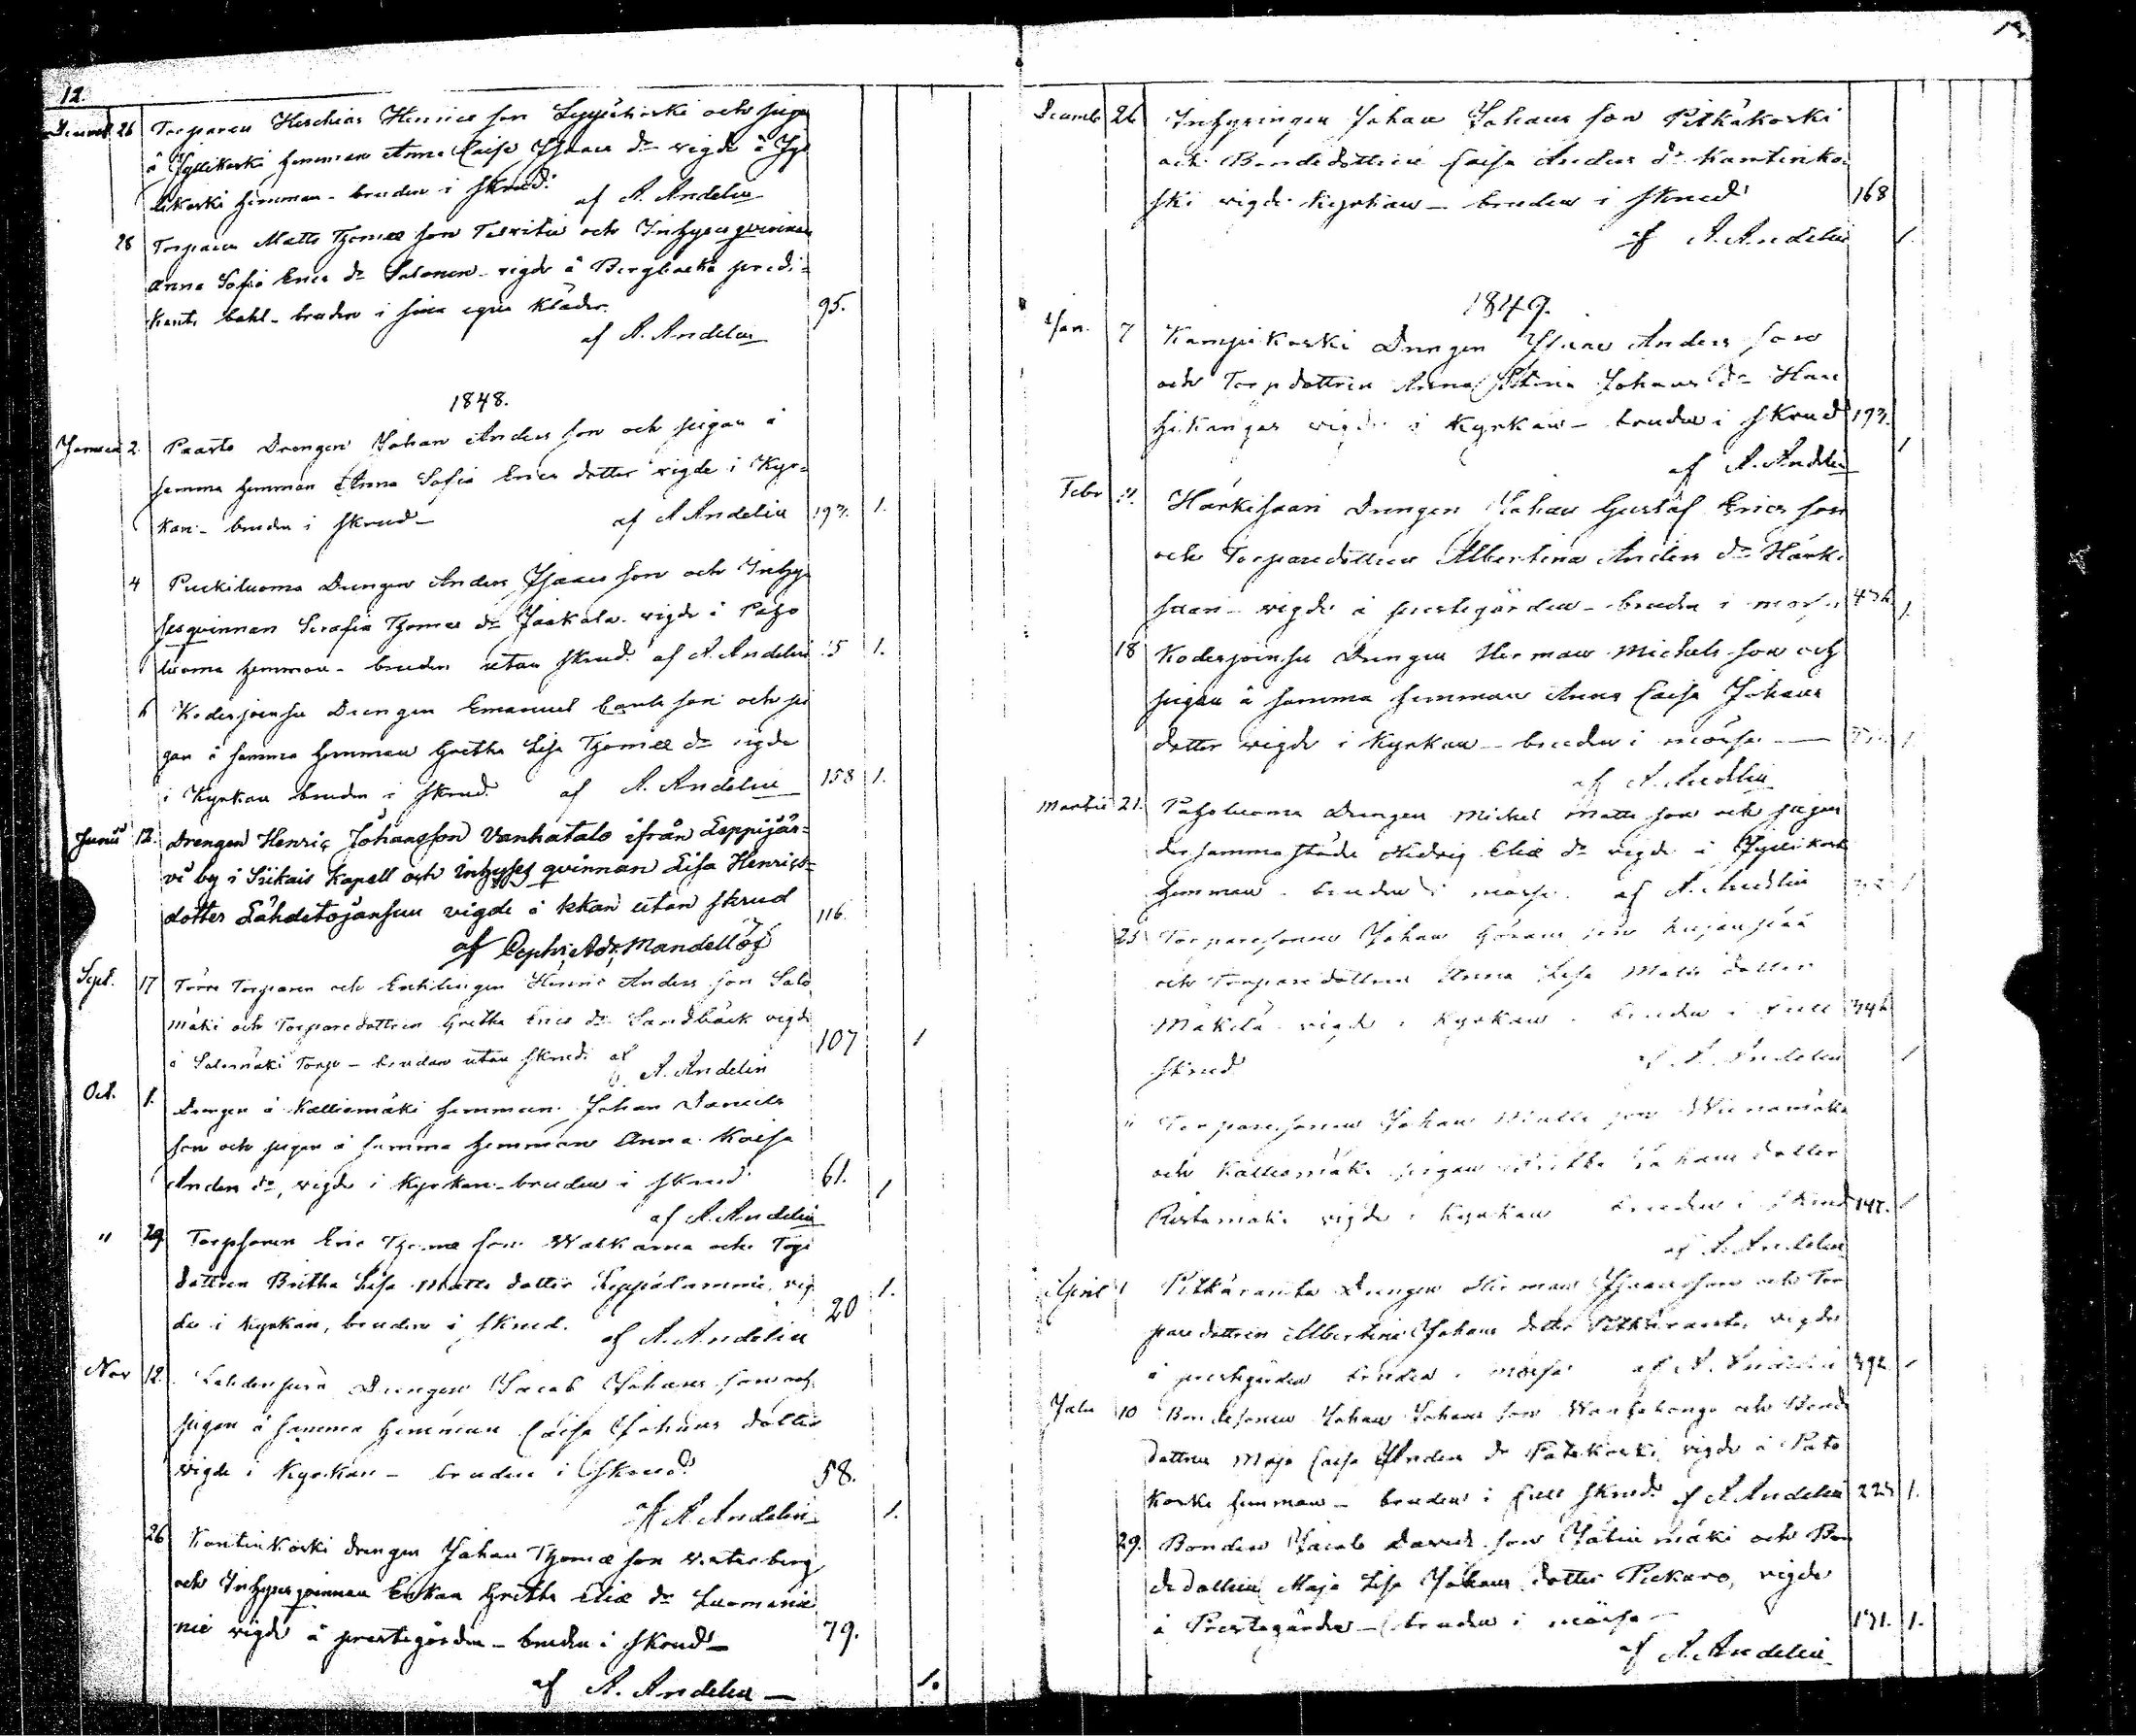 12.
Decemb. 26 Torparen Heschias Henrics son Leppikoski och pigan
å Jyllikoski hemman Anna Caisa Isaacs dr vigde å Jyl
likoski hemman - bruden i skrud. af A. Andelin
28 Torparen Matts Thomæ son och Inhyses qvinnan
Anna Sofia Erics dr Salonen vigde å Bergbacka predi=
kants bohl - bruden i sina egna kläder. 95.
af A. Andelin
1848.
Januari 2. Paasto Drengen Johan Anders son och pigan å
samma hemman Anna Sofia Erics dotter vigde i Kyr=
kan - bruden i skrud - af A Andelin 193. 1.
4 Puckiluoma Drengen Anders Isaacs son och Inhy
sesqvinnan Serafia Thomæ dr Jaakola vigde i Paho
luoma hemman - bruden utan skrud. af A. Andelin 15 1.
6 Kodesjoensu Drengen Emanuel Carls son och pi
gan å samma hemman Gretha Lisa Thomæ dr vigde
i Kyrkan bruden i skrud. af A. Andelin 158 1.
Junii 12. Drengen Henric Johansson Vanhatalo ifrån Leppijär=
vi by i Siikais Kapell och inhyses qvinnan Lisa Henrics=
dotter Lähdetojansuu vigde i kkan utan skrud 116.
af Adr. Mandellöf
Sept. 17 Torparen och Enklingen Henric Anders son Salo
mäki och Torparedottren Gretha Erics dr Sandbäck vigde
å Salomäki Torp - bruden utan skrud. af A. Andelin 107 1
Oct. 1. Drengen å Kalliomäki hemman Johan Daniels
son och pigan å samma hemman Anna Kaisa
Anders dr, vigde i Kyrkan - bruden i skrud. 61. 1
af A. Andelin
" 29 Torpsonen Eric Thomæ son Walkama och Torp
dottren Britha Lisa Matts dotter Leppälammi, vig
de i Kyrkan, bruden i skrud. af A. Andelin 20 1.
Nov 12. Drengen Jacob Johans son och
pigan å samma hemman Caisa Johans dotter
vigde i Kyrkan - bruden i skrud. 58.
af A. Andelin 1.
26 Kantinkoski drengen Johan Thomæ son Vesterberg
och Inhysesqvinnan Enkan Gretha Eliæ dr Luomanie
mi vigde å prestegården - bruden i skrud - 79.
af A. Andelin - 1.
Decemb 26 Inhysingen Johan Johans son Pitkäkoski
och Bondedottren Caisa Anders dr Kantinko
ski vigde Kyrkan - bruden i skrud 168
af A. Andelin 1.
1849.
Jan. 7 Kampikoski Drengen Isaac Anders son
och Torpdottren Anna Stina Johans dr Han
hikangas vigde i Kyrkan - bruden i skrud 193.
af A. Andelin 1
Febr 11. Härkisaari Drengen Johan Gustaf Erics son
och Torparedottren Albertina Anders dr Härki
saari - vigde å prestegården - bruden i 1.
18 Kodesjoensu Drengen Herman Michels son och
pigan å samma hemman Anna Caisa Johans
dotter vigde i Kyrkan - bruden i mössa - 1
af A. Andelin
Martii 21. Paholuoma Drengen Michel Matts son och pigan
der sammastädes Hedvig Eliæ dr vigde å Jyllikoski
hemman - bruden i mössa. af A. Andelin 1
25 Torparesonen Johan Görans son Kujanpää
och Torparedottren Anna Lisa Matts dotter
Mäkelä vigde i Kyrkan - bruden i full
skrud af A. Andelin 1
" Torparesonen Johan Matts son
och Kalliomäki pigan Britha Johans dotter
Ristamäki vigde i Kyrkan bruden i skrud 147. 1
af A. Andelin
April 1 Pitkäranta Drengen Herman Isaacs son och Tor
paredottren Albertina Johans dotter Pitkäranta, vigde
å prestgården bruden i mössa af A. Andelin 392 1
Julii 10 Bondesonen Johan Johans son Wanhahongo och Bonde
dottren Maja Caisa Anders dr Patokoski vigde å Pato
koski hemman - bruden i full skrud. af A Andelin 225 1.
29. Bonden Jacob Davids son och Bon
dedottren Maja Lisa Johans dotter Peckaro, vigde
å Prestegården - bruden i mössa - 131. 1.
af A. Andelin